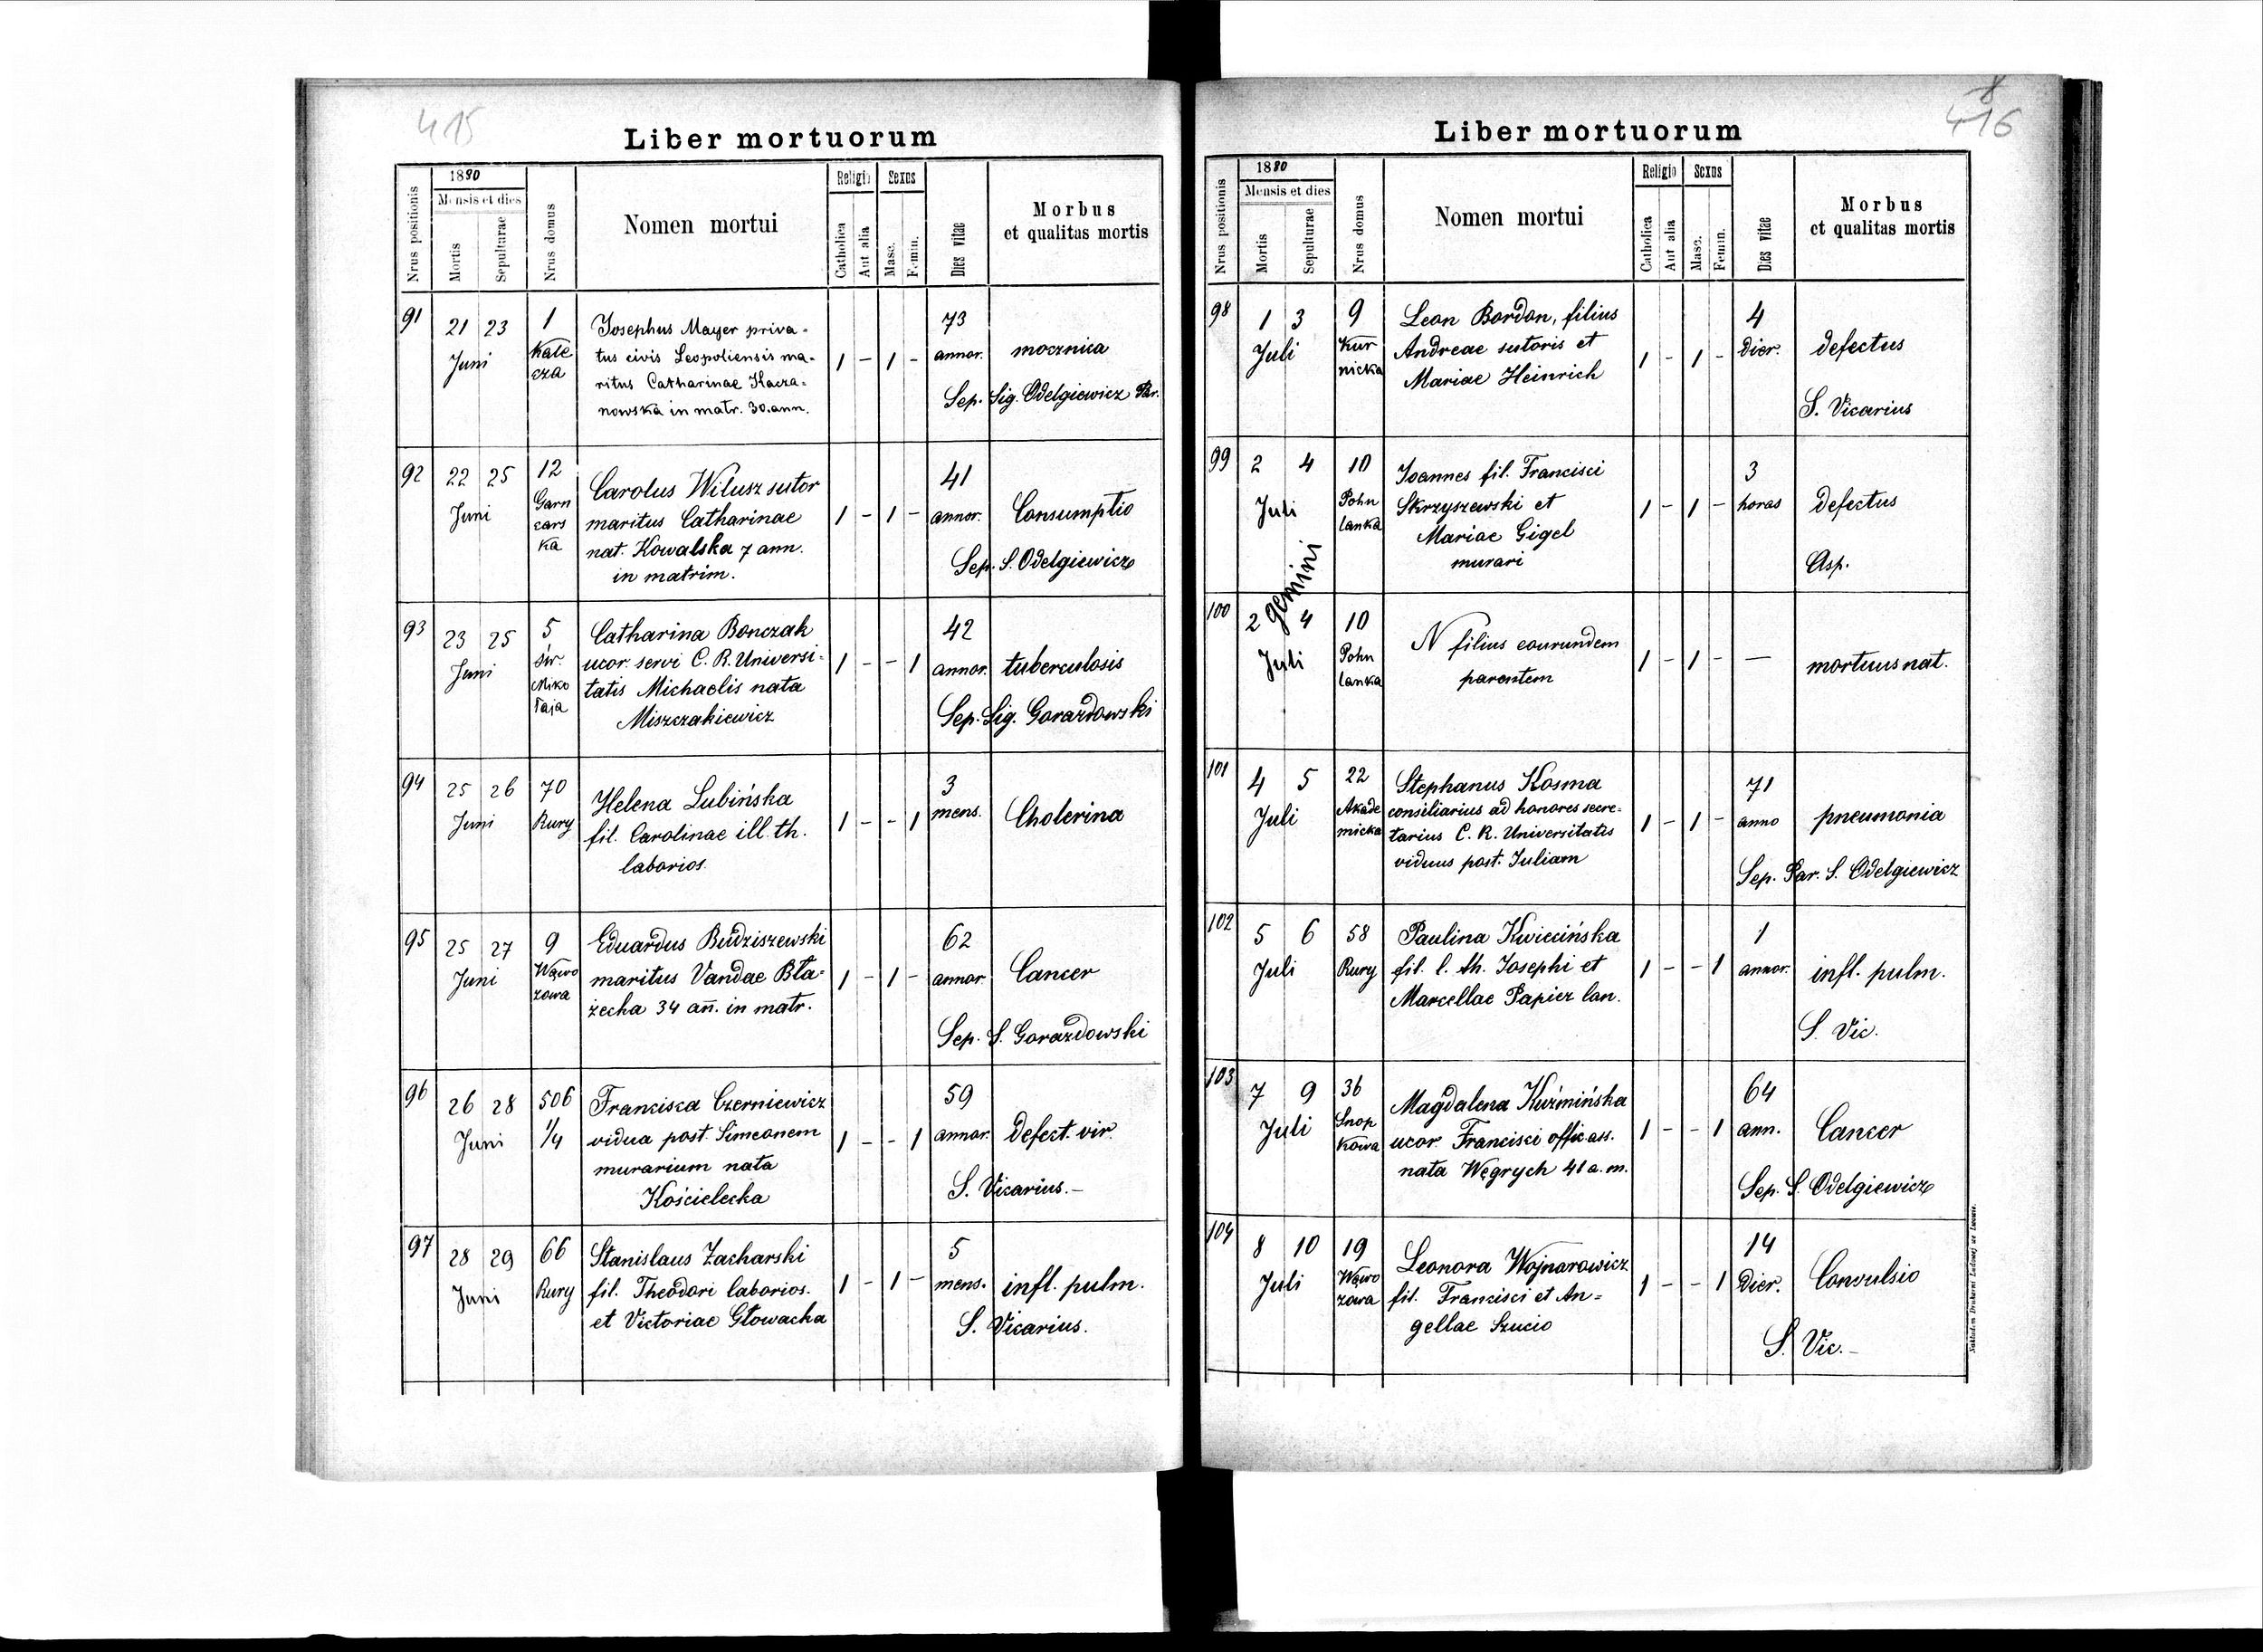 415
Liber mortuorum
1890
Religio
Sexus
Nrus positionis
Mensis et dies
Mortis
Sepulturae
Nrus domus
Nomen mortui
Catholica
Aut alia
Masc.
Femin.
Dies vitae
Morbus
et qualitas mortis
91
21 23
Juni
1
Kale
cza
Josephus Mayer priva-
tus civis Leopoliensis ma-
ritus Catharinae Hacza-
nowska in matr. 30. ann.
1 - 1 -
73
annor.
mocznica
Sep. Sig. Odelgiewicz Par.
92
22 25
Juni
12
Garn
cars
ka
Carolus Wilusz sutor
maritus Catharinae
nat. Kowalska 7 ann.
in matrim.
1 - 1 -
41
annor.
Consumptio
Sep. S. Odelgiewicz
93
23 25
Juni
5
św.
Miko
łaja
Catharina Bonczak
uxor servi C. R. Universi-
tatis Michaelis nata
Miszczakiewicz
1 - - 1
42
annor.
tuberculosis
Sep. Sig. Gorazdowski
94
25 26
Juni
70
Rury
Helena Lubińska
fil. Carolinae ill. th.
laborios.
1 - - 1
3
mens.
Cholerina
95
25 27
Juni
9
Wąwo
zowa
Eduardus Budziszewski
maritus Vandae Bła-
żecha 34 an̄. in matr.
1 - 1 -
62
annor.
Cancer
Sep. S. Gorazdowski
96
26 28
Juni
506
1/4
Francisca Czerniewicz
vidua post. Simeonem
murarium nata
Kościelecka
1 - - 1
59
annor.
defect. vir.
S. Vicarius.-
97
28 29
Juni
66
Rury
Stanislaus Zacharski
fil. Theodori laborios.
et Victoriae Głowacka
1 - 1 -
5
mens.
infl. pulm.
S. Vicarius.
416
Liber mortuorum
1890
Religio
Sexus
Nrus positionis
Mensis et dies
Mortis
Sepulturae
Nrus domus
Nomen mortui
Catholica
Aut alia
Masc.
Femin.
Dies vitae
Morbus
et qualitas mortis
98
1 3
Juli
9
Kur
nicka
Leon Bordon, filius
Andreae sutoris et
Mariae Heinrich
1 - 1 -
4
dier.
defectus
S. Vicarius
99
2 4
Juli
10
Pohu
lanka
Joannes fil. Francisci
Skrzyszewski et
Mariae Gigel
murari
1 - 1 -
3
horas
defectus
Asp.
gemini
100
2 4
Juli
10
Pohu
lanka
N filius eourundem
parentem
1 - 1 -
—
mortuus nat.
101
4 5
Juli
22
Akade
micka
Stephanus Kosma
consiliarius ad honores secre-
tarius C. R. Universitatis
viduus post. Juliam
1 - 1 -
71
anno
pneumonia
Sep. Par. S. Odelgiewicz
102
5 6
Juli
58
Rury
Paulina Kwiecińska
fil. l. th. Josephi et
Marcellae Papierz lan.
1 - - 1
1
annor.
infl. pulm.
S. Vic.
103
7 9
Juli
36
Snop
kowa
Magdalena Kuźmińska
uxor Francisci offic. ass.
nata Węgrych 41 a. m.
1 - - 1
64
ann.
Cancer
Sep. S. Odelgiewicz
104
8 10
Juli
19
Wąwo
zowa
Leonora Wojnarowicz
fil. Francisci et An=
gellae Szucio
1 - - 1
14
dier.
Convulsio
S. Vic.-
Nakładem Drukarni Ludowej we Lwowie.